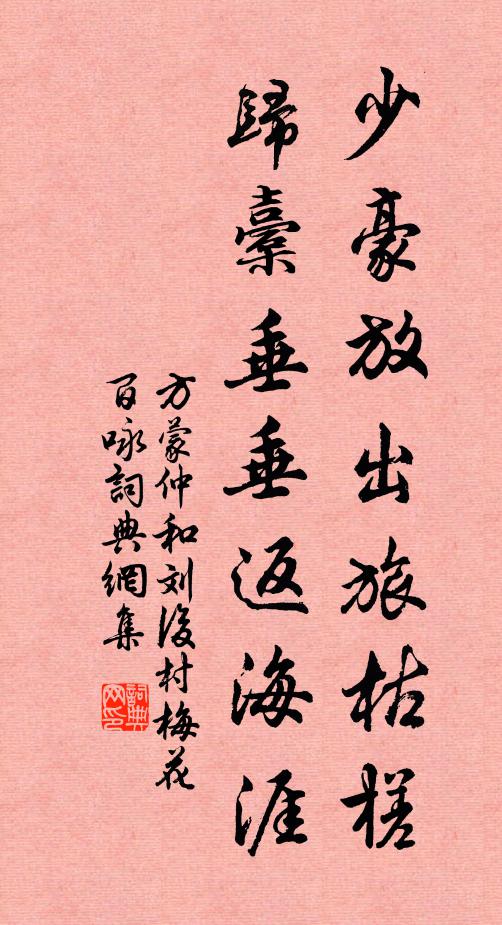 少豪放出旅枯槎
歸橐垂垂返海涯
方蒙仲和刘後村梅花
百咏詞典網集
詞典
网印